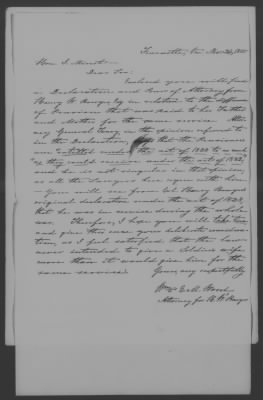 Hon. J. Minot
Dear Sir:
Enclosed you will find
a Declaration and Power of Attorney from
Henry W. Esqr in relation to the
of Pensions that was paid to his Father
and Mother for the same service. Attor-
ney General in the opinion referred to
in the Declaration, says that the Pensioners
are entitled under the act of 1838 to such
as they could receive under the act of 1832,
and he is not singular in that opinion,
as all the Lawyers here agree with him
You will see from Col Henry
original declaration under the act of 1828,
that he was in service during the whole
war. Therefore, I hope you will take time
and give this case your deliberate consider-
ation, as I feel satisfied that the law
never intended to give a Soldiers wife
more than it would give him for the
same service.
Yours, very respectfully
Attorney for H. W.